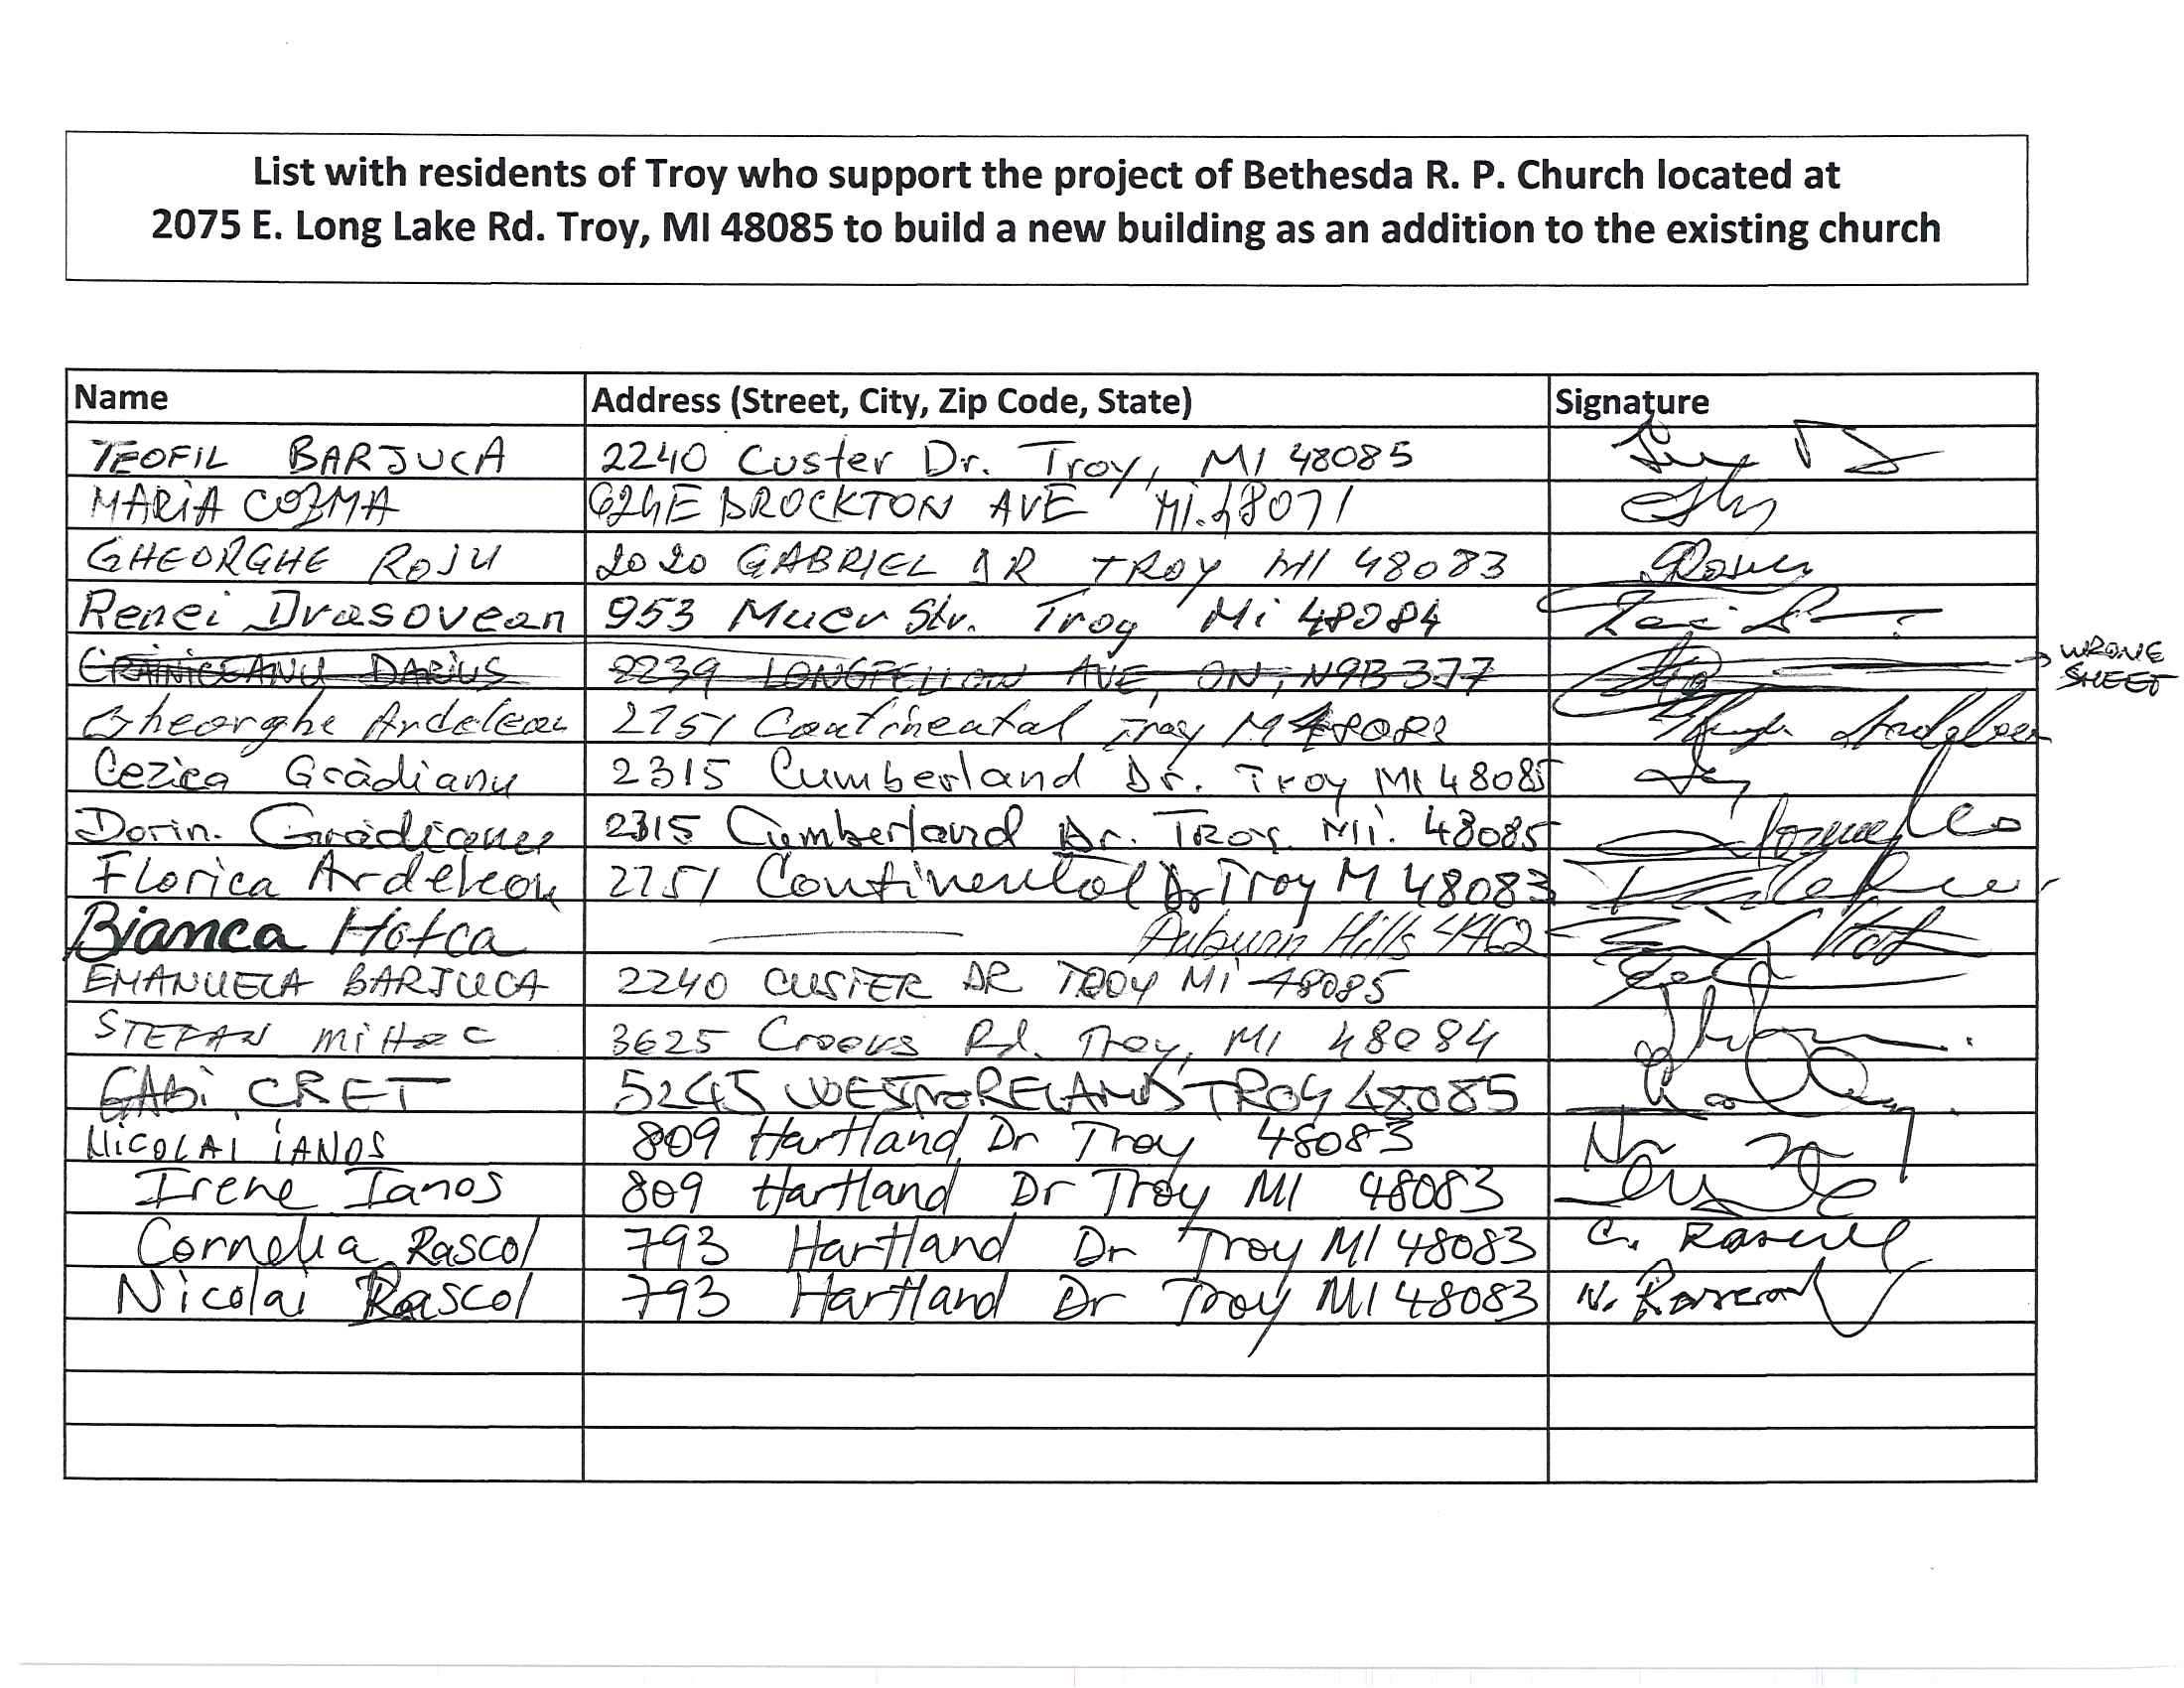 List with residents of Troy who support the project of Bethesda R. P. Church located at
2075 E. Long Lake Rd. Troy, MI 48085 to build a new building as an addition to the existing church
Name Address (Street, City, Zip Code, State) Signature
TEOFIL BARJUCA 2240 Custer Dr. Troy, MI 48085
MARIA COZMA 624 E BROCKTON AVE Mi. 48071
GHEORGHE ROJU 2020 GABRIEL DR TROY MI 48083
Renei Drasovean 953 Muer Str. Troy Mi 48084
CRAINICEANU DARIUS 2239 LONGFELLOW AVE, ON, N9B 3J7 WRONG
SHEET
Gheorghe Ardelean 2751 Continental Troy M 48083
Cezica Grădianu 2315 Cumberland Dr. Troy MI 48085
Dorin. Grădianu 2315 Cumberland Dr. Troy. Mi. 48085
Florica Ardelean 2751 Continental Dr Troy M 48083
Bianca Hotca Auburn Hills
EMANUELA BARJUCA 2240 CUSTER DR TROY Mi 48085
STEFAN MIHOC 3625 Crooks Rd. Troy, MI 48084
GABi CRET 5245 WESTMORELAND TROY 48085
NICOLAI IANOS 809 Hartland Dr Troy 48083
Irene Ianos 809 Hartland Dr Troy MI 48083
Cornelia Rascol 793 Hartland Dr Troy MI 48083 C. Rascol
Nicolai Rascol 793 Hartland Dr Troy MI 48083 N. Rascol